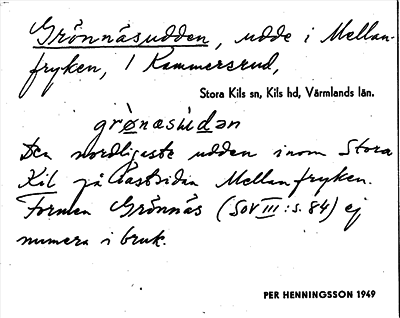 Grönnäsudden, udde i Mellan-
fryken, / Kammersrud,
Stora Kils sn, Kils hd, Värmlands län.
grønæsùdan
Den nordligaste udden inom Stora
Kil på västsidan Mellanfryken.
Formen Grönnäs (SOV III: s. 84) ej
numera i bruk.
PER HENNINGSSON 1949